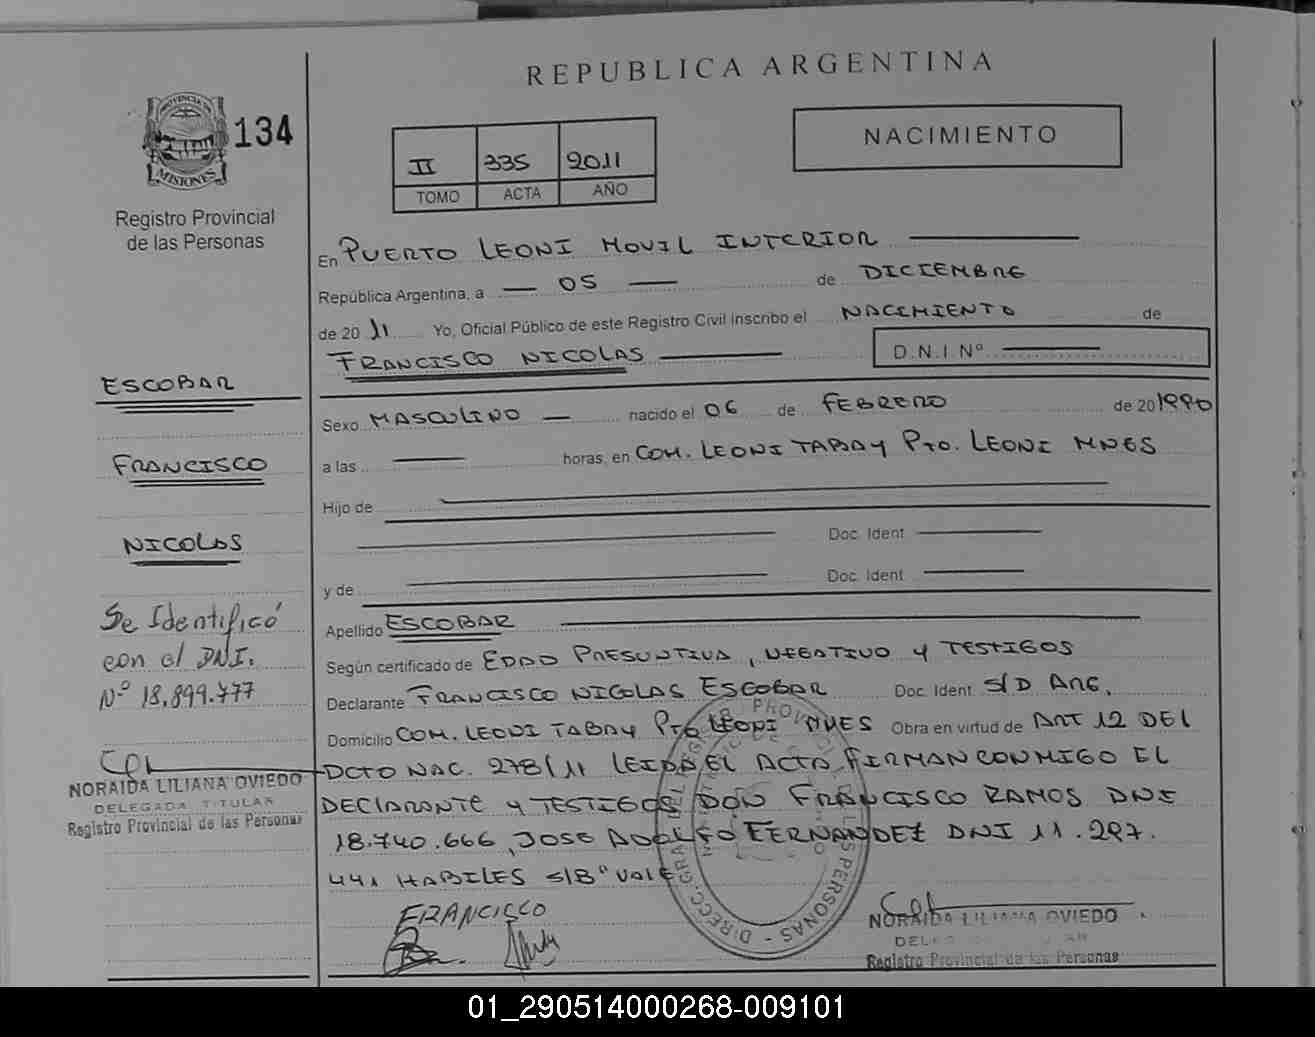 REPUBLICA ARGENTINA
PROVINCIA DE
MISIONES
134
Registro Provincial
de las Personas
II 335 2011
TOMO ACTA AÑO
NACIMIENTO
En PUERTO LEONI MOVIL INTERIOR
República Argentina, a 05 de DICIEMBRE
de 2011 Yo, Oficial Público de este Registro Civil inscribo el NACIMIENTO de
FRANCISCO NICOLAS D.N.I. Nº
Sexo MASCULINO nacido el 06 de FEBRERO de 20 1990
a las horas, en COM. LEONI TABAY PTO. LEONI MNES
Hijo de
Doc. Ident
y de Doc. Ident
Apellido ESCOBAR
Según certificado de EDAD PRESUNTIVA, NEGATIVO Y TESTIGOS
Declarante FRANCISCO NICOLAS ESCOBAR Doc. Ident S/D ARG.
Domicilio COM. LEONI TABAY PTO LEONI MNES Obra en virtud de ART 12 DEL
DCTO NAC. 278/11 LEIDA EL ACTA FIRMAN CONMIGO EL
DECLARANTE Y TESTIGOS DON FRANCISCO RAMOS DNI
18.740.666, JOSE ADOLFO FERNANDEZ DNI 11.297.
441 HABILES S/Bº VALE
FRANCISCO
ESCOBAR
FRANCISCO
NICOLAS
Se Identificó
con el DNI.
Nº 18.899.777
NORAIDA LILIANA OVIEDO
DELEGADA TITULAR
Registro Provincial de las Personas
NORAIDA LILIANA OVIEDO
Registro Provincial de las Personas
01_290514000268-009101